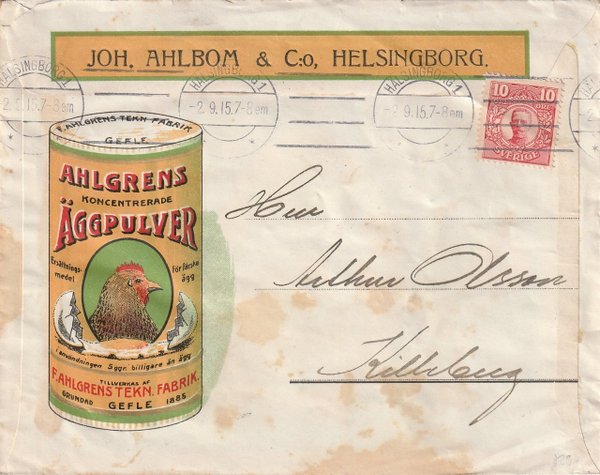 JOH. AHLBOM & C:o, HELSINGBORG.
HÄLSINGBORG 1
-2.9.15.7-8 em
HÄLSINGBORG 1
-2.9.15.7-8 em
HÄLSINGBORG 1
-2.9.15.7-8 em
10 10
SVERIGE
F. AHLGRENS TEKN. FABRIK
GEFLE
AHLGRENS
KONCENTRERADE
ÄGGPULVER
Ersättnings-
medel
För färska
ägg
i användningen 5 ggr. billigare än ägg
TILLVERKAS AF
F. AHLGRENS TEKN. FABRIK.
GRUNDAD 1885
GEFLE
Herr
Arthur Olsson